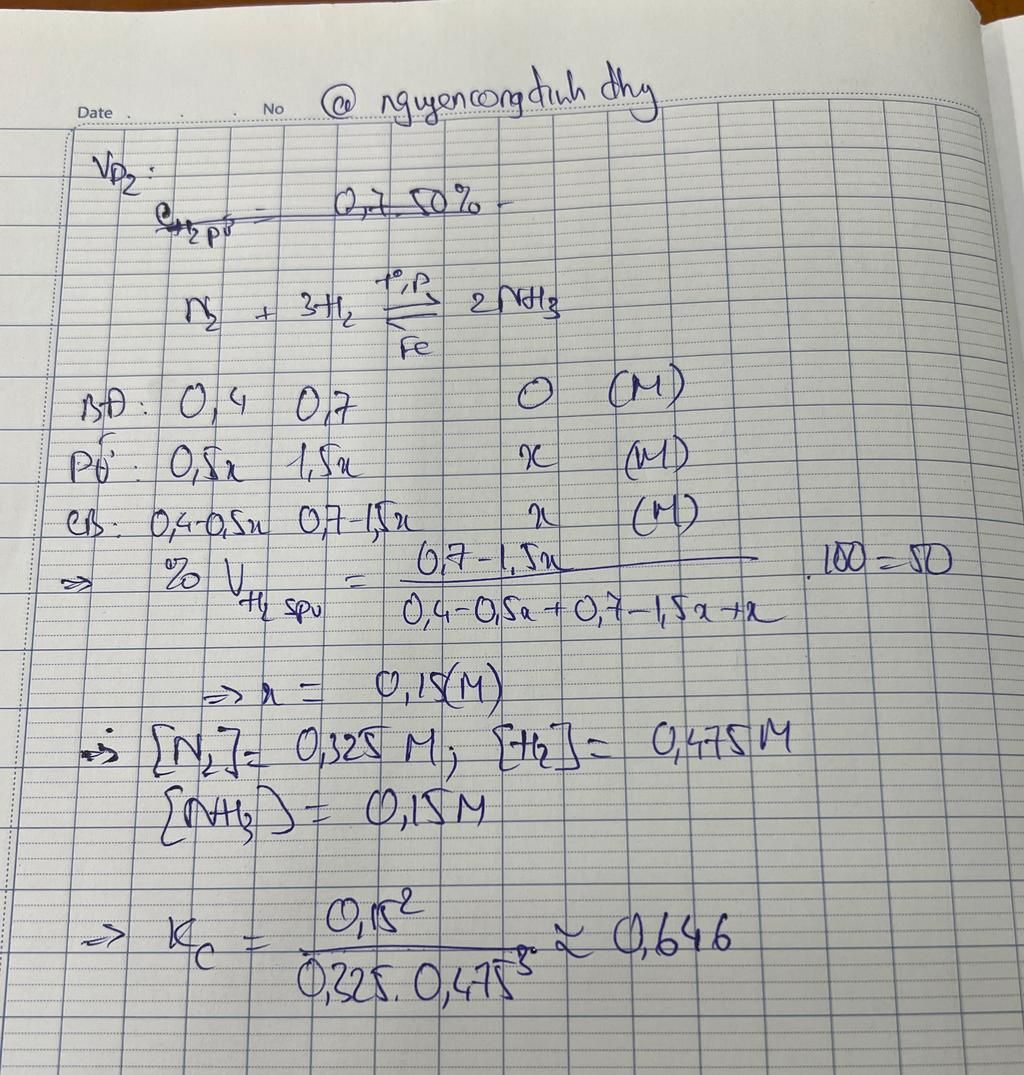 Date . . . No @ nguyencongdinh dhy
VD2:
CH2 pư = 0,7.50%
N2 + 3H2 ⇌ 2NH3
t°, P
Fe
BĐ: 0,4 0,7 0 (M)
Pư: 0,5x 1,5x x (M)
CB: 0,4-0,5x 0,7-1,5x x (M)
=> %VH2 spư = (0,7-1,5x)/(0,4-0,5x+0,7-1,5x+x) .100 = 50
=> x = 0,15(M)
=> [N2] = 0,325 M; [H2] = 0,475M
[NH3] = 0,15M
=> KC = 0,15²/(0,325. 0,475³) ≈ 0,646